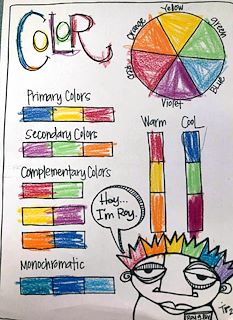 COLOR
Yellow
orange
green
Red
Blue
Violet
Primary Colors
Secondary Colors
Complementary Colors
Monochromatic
Warm
Cool
Hey...
I'm Roy.